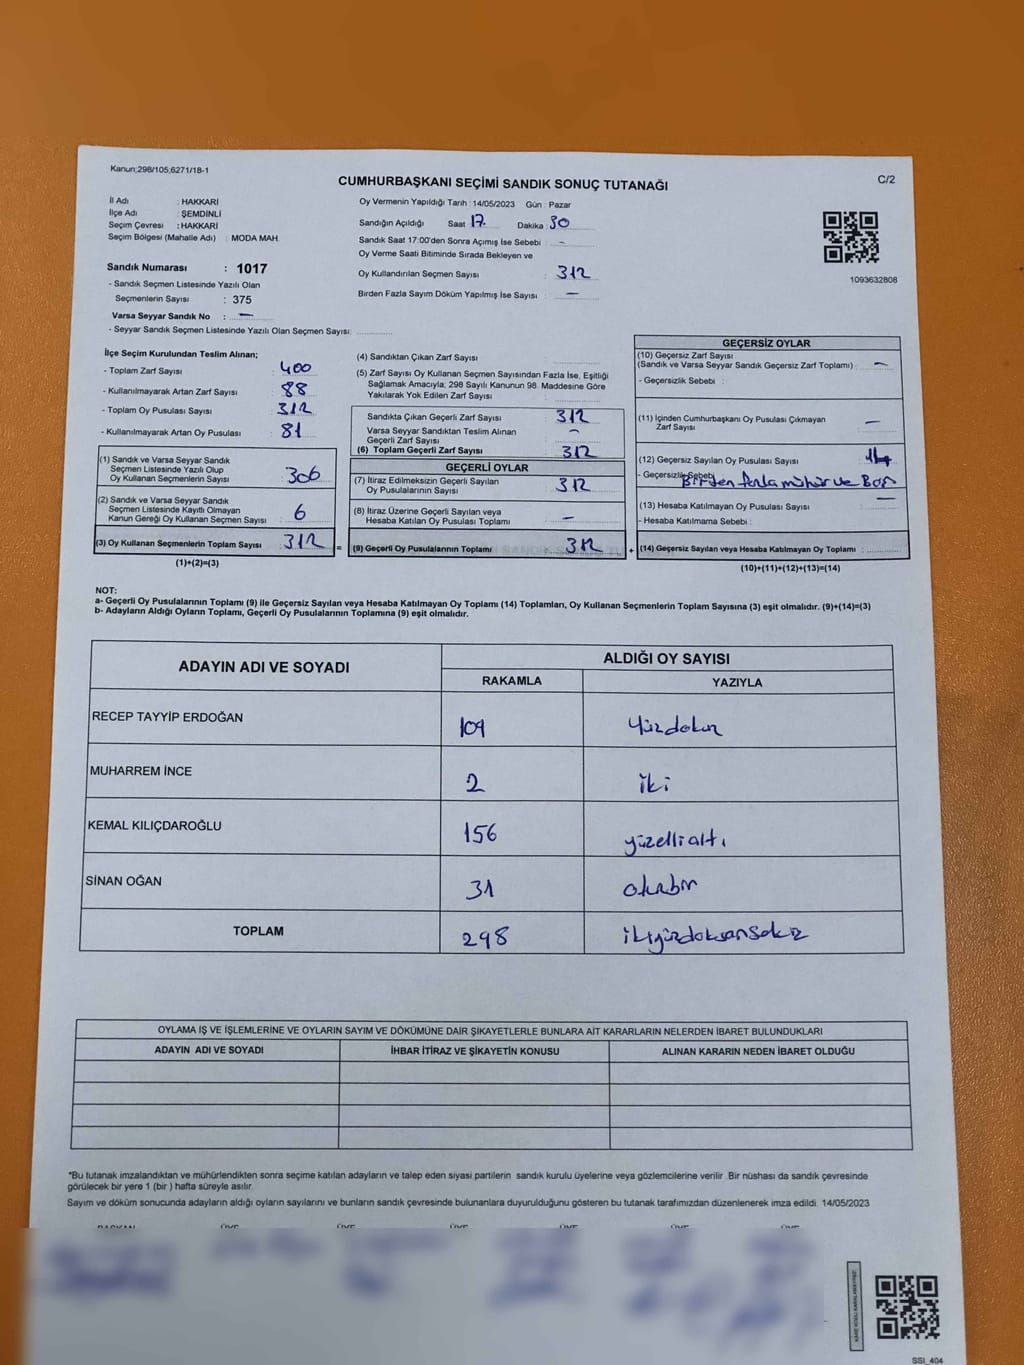 Kanun;298/105;6271/18-1
CUMHURBAŞKANI SEÇİMİ SANDIK SONUÇ TUTANAĞI
C/2
İl Adı : HAKKARİ
İlçe Adı : ŞEMDİNLİ
Seçim Çevresi : HAKKARİ
Seçim Bölgesi (Mahalle Adı) : MODA MAH.
Sandık Numarası : 1017
- Sandık Seçmen Listesinde Yazılı Olan
Seçmenlerin Sayısı : 375
Varsa Seyyar Sandık No : —
- Seyyar Sandık Seçmen Listesinde Yazılı Olan Seçmen Sayısı:
Oy Vermenin Yapıldığı Tarih :14/05/2023 Gün : Pazar
Sandığın Açıldığı Saat 17. Dakika 30
Sandık Saat 17:00'den Sonra Açımış İse Sebebi : -
Oy Verme Saati Bitiminde Sırada Bekleyen ve
Oy Kullandırılan Seçmen Sayısı : 312
Birden Fazla Sayım Döküm Yapılmış İse Sayısı : —
1093632808
İlçe Seçim Kurulundan Teslim Alınan;
- Toplam Zarf Sayısı : 400
- Kullanılmayarak Artan Zarf Sayısı : 88
- Toplam Oy Pusulası Sayısı : 312
- Kullanılmayarak Artan Oy Pusulası : 81
(1) Sandık ve Varsa Seyyar Sandık
Seçmen Listesinde Yazılı Olup
Oy Kullanan Seçmenlerin Sayısı : 306
(2) Sandık ve Varsa Seyyar Sandık
Seçmen Listesinde Kayıtlı Olmayan
Kanun Gereği Oy Kullanan Seçmen Sayısı : 6
(3) Oy Kullanan Seçmenlerin Toplam Sayısı : 312
(1)+(2)=(3)
(4) Sandıktan Çıkan Zarf Sayısı :
(5) Zarf Sayısı Oy Kullanan Seçmen Sayısından Fazla İse, Eşitliği
Sağlamak Amacıyla; 298 Sayılı Kanunun 98. Maddesine Göre
Yakılarak Yok Edilen Zarf Sayısı :
Sandıkta Çıkan Geçerli Zarf Sayısı : 312
Varsa Seyyar Sandıktan Teslim Alınan
Geçerli Zarf Sayısı : -
(6) Toplam Geçerli Zarf Sayısı : 312
GEÇERLİ OYLAR
(7) İtiraz Edilmeksizin Geçerli Sayılan
Oy Pusulalarının Sayısı : 312
(8) İtiraz Üzerine Geçerli Sayılan veya
Hesaba Katılan Oy Pusulası Toplamı : —
= (9) Geçerli Oy Pusulalarının Toplamı : 312
GEÇERSİZ OYLAR
(10) Geçersiz Zarf Sayısı
(Sandık ve Varsa Seyyar Sandık Geçersiz Zarf Toplamı) : —
- Geçersizlik Sebebi :
(11) İçinden Cumhurbaşkanı Oy Pusulası Çıkmayan
Zarf Sayısı : —
(12) Geçersiz Sayılan Oy Pusulası Sayısı : 14
- Geçersizlik Sebebi : Birden fazla mühür ve Boş
(13) Hesaba Katılmayan Oy Pusulası Sayısı : —
- Hesaba Katılmama Sebebi :
+ (14) Geçersiz Sayılan veya Hesaba Katılmayan Oy Toplamı :
(10)+(11)+(12)+(13)=(14)
NOT:
a- Geçerli Oy Pusulalarının Toplamı (9) ile Geçersiz Sayılan veya Hesaba Katılmayan Oy Toplamı (14) Toplamları, Oy Kullanan Seçmenlerin Toplam Sayısına (3) eşit olmalıdır. (9)+(14)=(3)
b- Adayların Aldığı Oyların Toplamı, Geçerli Oy Pusulalarının Toplamına (9) eşit olmalıdır.
ADAYIN ADI VE SOYADI
ALDIĞI OY SAYISI
RAKAMLA YAZIYLA
RECEP TAYYİP ERDOĞAN 109 Yüzdokuz
MUHARREM İNCE 2 iki
KEMAL KILIÇDAROĞLU 156 yüzellialtı
SİNAN OĞAN 31 otuzbir
TOPLAM 298 ikiyüzdoksansekiz
OYLAMA İŞ VE İŞLEMLERİNE VE OYLARIN SAYIM VE DÖKÜMÜNE DAİR ŞİKAYETLERLE BUNLARA AİT KARARLARIN NELERDEN İBARET BULUNDUKLARI
ADAYIN ADI VE SOYADI İHBAR İTİRAZ VE ŞİKAYETİN KONUSU ALINAN KARARIN NEDEN İBARET OLDUĞU
*Bu tutanak imzalandıktan ve mühürlendikten sonra seçime katılan adayların ve talep eden siyasi partilerin sandık kurulu üyelerine veya gözlemcilerine verilir. Bir nüshası da sandık çevresinde
görülecek bir yere 1 (bir ) hafta süreyle asılır.
Sayım ve döküm sonucunda adayların aldığı oyların sayılarını ve bunların sandık çevresinde bulunanlara duyurulduğunu gösteren bu tutanak tarafımızdan düzenlenerek imza edildi. 14/05/2023
BAŞKAN ÜYE ÜYE ÜYE ÜYE ÜYE ÜYE
SSI_404